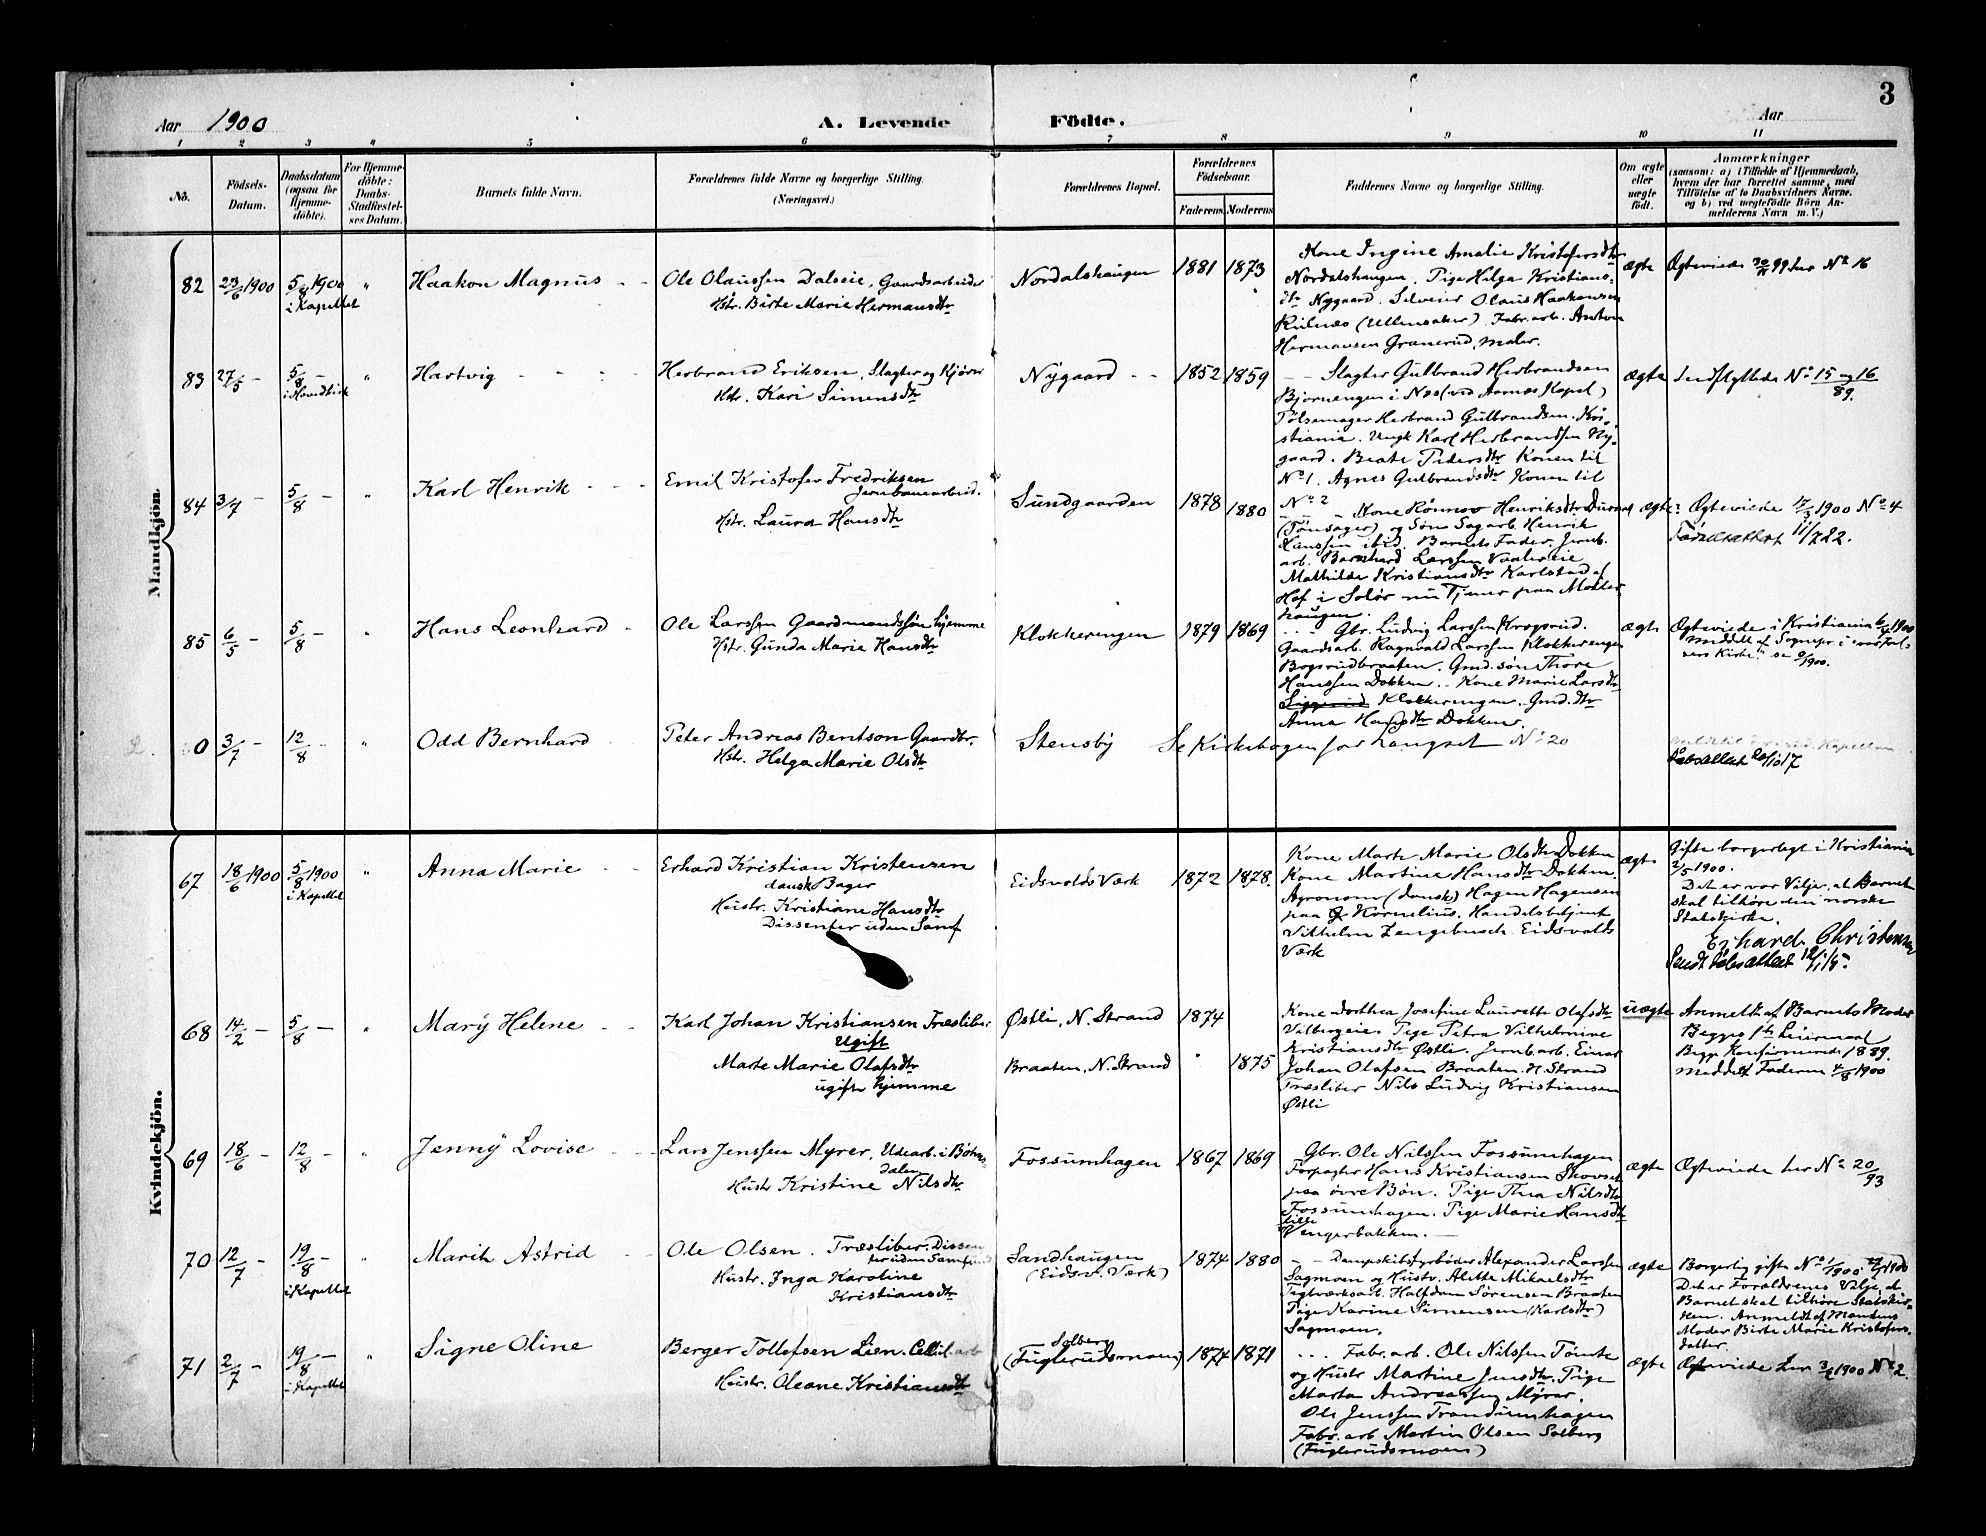 3
Aar 1900
A. Levende Födte.
Aar
1 2 3 4 5 6 7 8 9 10 11
No.
Födsels-Datum.
Daabsdatum (ogsaa for Hjemme-döbte).
For Hjemme-döbte: Daabs-Stadfæstel-ses Datum.
Barnets fulde Navn.
Forældrenes fulde Navne og borgerlige Stilling.
(Næringsvei.)
Forældrenes Bopæl.
Forældrenes Födselsaar.
Faderens Moderens
Faddernes Navne og borgerlige Stilling.
Om ægte eller uægte födt.
Anmærkninger
(saasom: a) i Tilfælde af Hjemmedaab,
hvem der har forrettet samme, med
Tilföielse af to Daabsvidners Navne.
og b) ved uægtefödte Börn An-
melderens Navn m. V.)
Mandkjön.
82 23/6 1900 5/8 1900 i Kapellet " Haakon Magnus
Ole Olaussen Dalseie, Gaardsarbeider
Hstr. Birte Marie Hermansdtr
Nordalshaugen 1881 1873
Kone Ingine Amalie Kristofersdtr
Nordalshaugen. Pige Helga Kristians-
dtr Nygaard. Selveier Olaus Haakensen
Kulnæs (Ullensaker) Fabr. arb. Anton
Hermansen Granerud, maler.
ægte Ægteviede 30/ 99 her No 16
83 27/5 – 5/8 – " Hartvig
Herbrand Eriksen, Slagter og Kjører
Hstr. Kari Simensdtr
Nygaard 1852 1859
Slagter Gulbrand Herbrandsen
Bjørnengen i Næs (ved Aarnes Kapel)
Pölsemager Herbrand Gulbrandsen. Kri-
stiania. Ungk Karl Herbrandsen Ny-
gaard. Beate Pedersdtr Konen til
No 1. Agnes Gulbrandsdtr Konen til
No 2
ægte Indflyttede No 15 og 16/89.
84 3/7 – 5/8 – " Karl Henrik
Emil Kristofer Fredriksen
Jernbanearbeid.
Hstr. Laura Hansdtr
Sundgaarden 1878 1880
Kone Rönnov Henriksdtr
(Tønsager) og Søn Sagarb. Henrik
Hanssen ibid. Barnets Fader. Jernb.
arb. Barnhard Larssen Vaalseie
Mathilde Kristiansdtr Karlstad af
Hof i Solör nu Tjener paa Molter-
haugen.
ægte Ægteviede 17/3 1900 No 4
Födselsattest 11/7 22.
85 6/5 – 5/8 – " Hans Leonhard
Ole Larssen Gaardmandssøn hjemme
Hstr. Gunda Marie Hansdtr
Klokkerengen 1879 1869
Gbr. Ludvig Larssen Krogsrud.
Gaardsarb. Ragnvald Larssen Klokkerengen
Bogsrudbraaten. Gmd. søn Thore
Hanssen Dokken. – Kone Marie Larsdtr
Klokkerengen. Gmd. dtr
Anna Hansdtr Dokken.
ægte Ægteviede i Kristiania 1900
0 3/7 – 12/8 – " Odd Bernhard
Peter Andreas Bentson Gaardbr.
Hstr. Helga Marie Olsdtr
Stensby Se Kirkebogen for Langset No 20
Döbsattest 20/10 17
Kvindekjön.
67 18/6 1900 5/8 1900 i Kapellet " Anna Marie
Erhard Kristian Kristensen
dansk Bager
Hustr. Kristiane Hansdtr
Dissenter uden Samf
Eidsvolds Værk 1872 1878.
Kone Marte Marie Olsdtr Dokken
Kone Martine Hansdtr Dokken.
Agronom (dansk) Hagen Hagensen
paa Kornelius. Handelsbetjent
Vilhelm Zengebusch. Eidsvolds
Værk
ægte Gifte borgerlegt i Kristiania
2/5 1900.
Det er vor Vilje, at Barnet
skal tilhöre den norske
Statskirke.
Erhard Christensen
Sendt Döbsattest 12/1 15.
68 14/2 – 5/8 – " Mary Helene
Karl Johan Kristiansen Træsliber
Ugift
Marte Marie Olafsdtr
ugifte hjemme
Østli, N. Strand 1874
Braaten, N. Strand " 1875
Kone Dorthea Josefine Laurette Olafsdtr
Vilbergeie. Pige Petra Vilhelmine
Kristiansdtr Østli. Jernb. arb. Einar
Johan Olafsen Braaten. N. Strand
Træsliber Nils Ludvig Kristiansen
Østli
uægte Anmeldt af Barnets Moder
Begges 1te Leiermaal
Begge Konfirmerede 1889.
Meddelt Faderen 4/8 1900
69 18/6 – 12/8 – " Jenny Lovise
Lars Jenssen Myrer, Udearb. i Bøhns-
dalen
Hustr Kristine Nilsdtr
Fossumhagen 1867 1869
Gbr. Ole Nilssen Fossumhagen
Forpagter Hans Kristiansen Skovset
paa övre Bön. Pige Thea Nilsdtr
Fossumhagen. Pige Marie Hansdtr
lille
Vengerbakken.
ægte Ægteviede her No 20/93
70 12/7 – 19/8 – i Kapellet " Marit Astrid
Ole Olsen. Træsliber. Dissen-
ter uden Samfund
Hustr. Inga Karoline
Kristiansdtr
Sandhaugen
(Eidsv. Værk)
1874 1880
Dampskibsfyrböder Alexander Larssen
Sagmoen og Hustr. Alette Mikaelsdtr
Teglværksarb. Halfdan Sörensen Braaten
Pige Karine Simensen (Karlsdtr)
Sagmoen.
ægte Borgerlig gifte No 1/1900 1900
Det er Forældrenes Vilje, at
Barnet skal tilhöre Statskir-
ken. Anmeldt af Mandens
Moder Birte Marie Kristofers-
datter.
71 2/7 – 19/8 – i Kapellet " Signe Oline
Berger Tollefsen Lien. Cellul. arb
Hustr. Oleane Kristiansdtr
Solberg
(Fuglerudsmoen) 1874 1871
Fabr. arb. Ole Nilssen Tömte
og Hustr Martine Jensdtr. Pige
Marta Andreassen Myrer.
Ole Jenssen Trondumhagen
Fabr. arb Martin Olsen Solberg
(Fuglerudsmoen)
ægte Ægteviede her 1900 No 2.